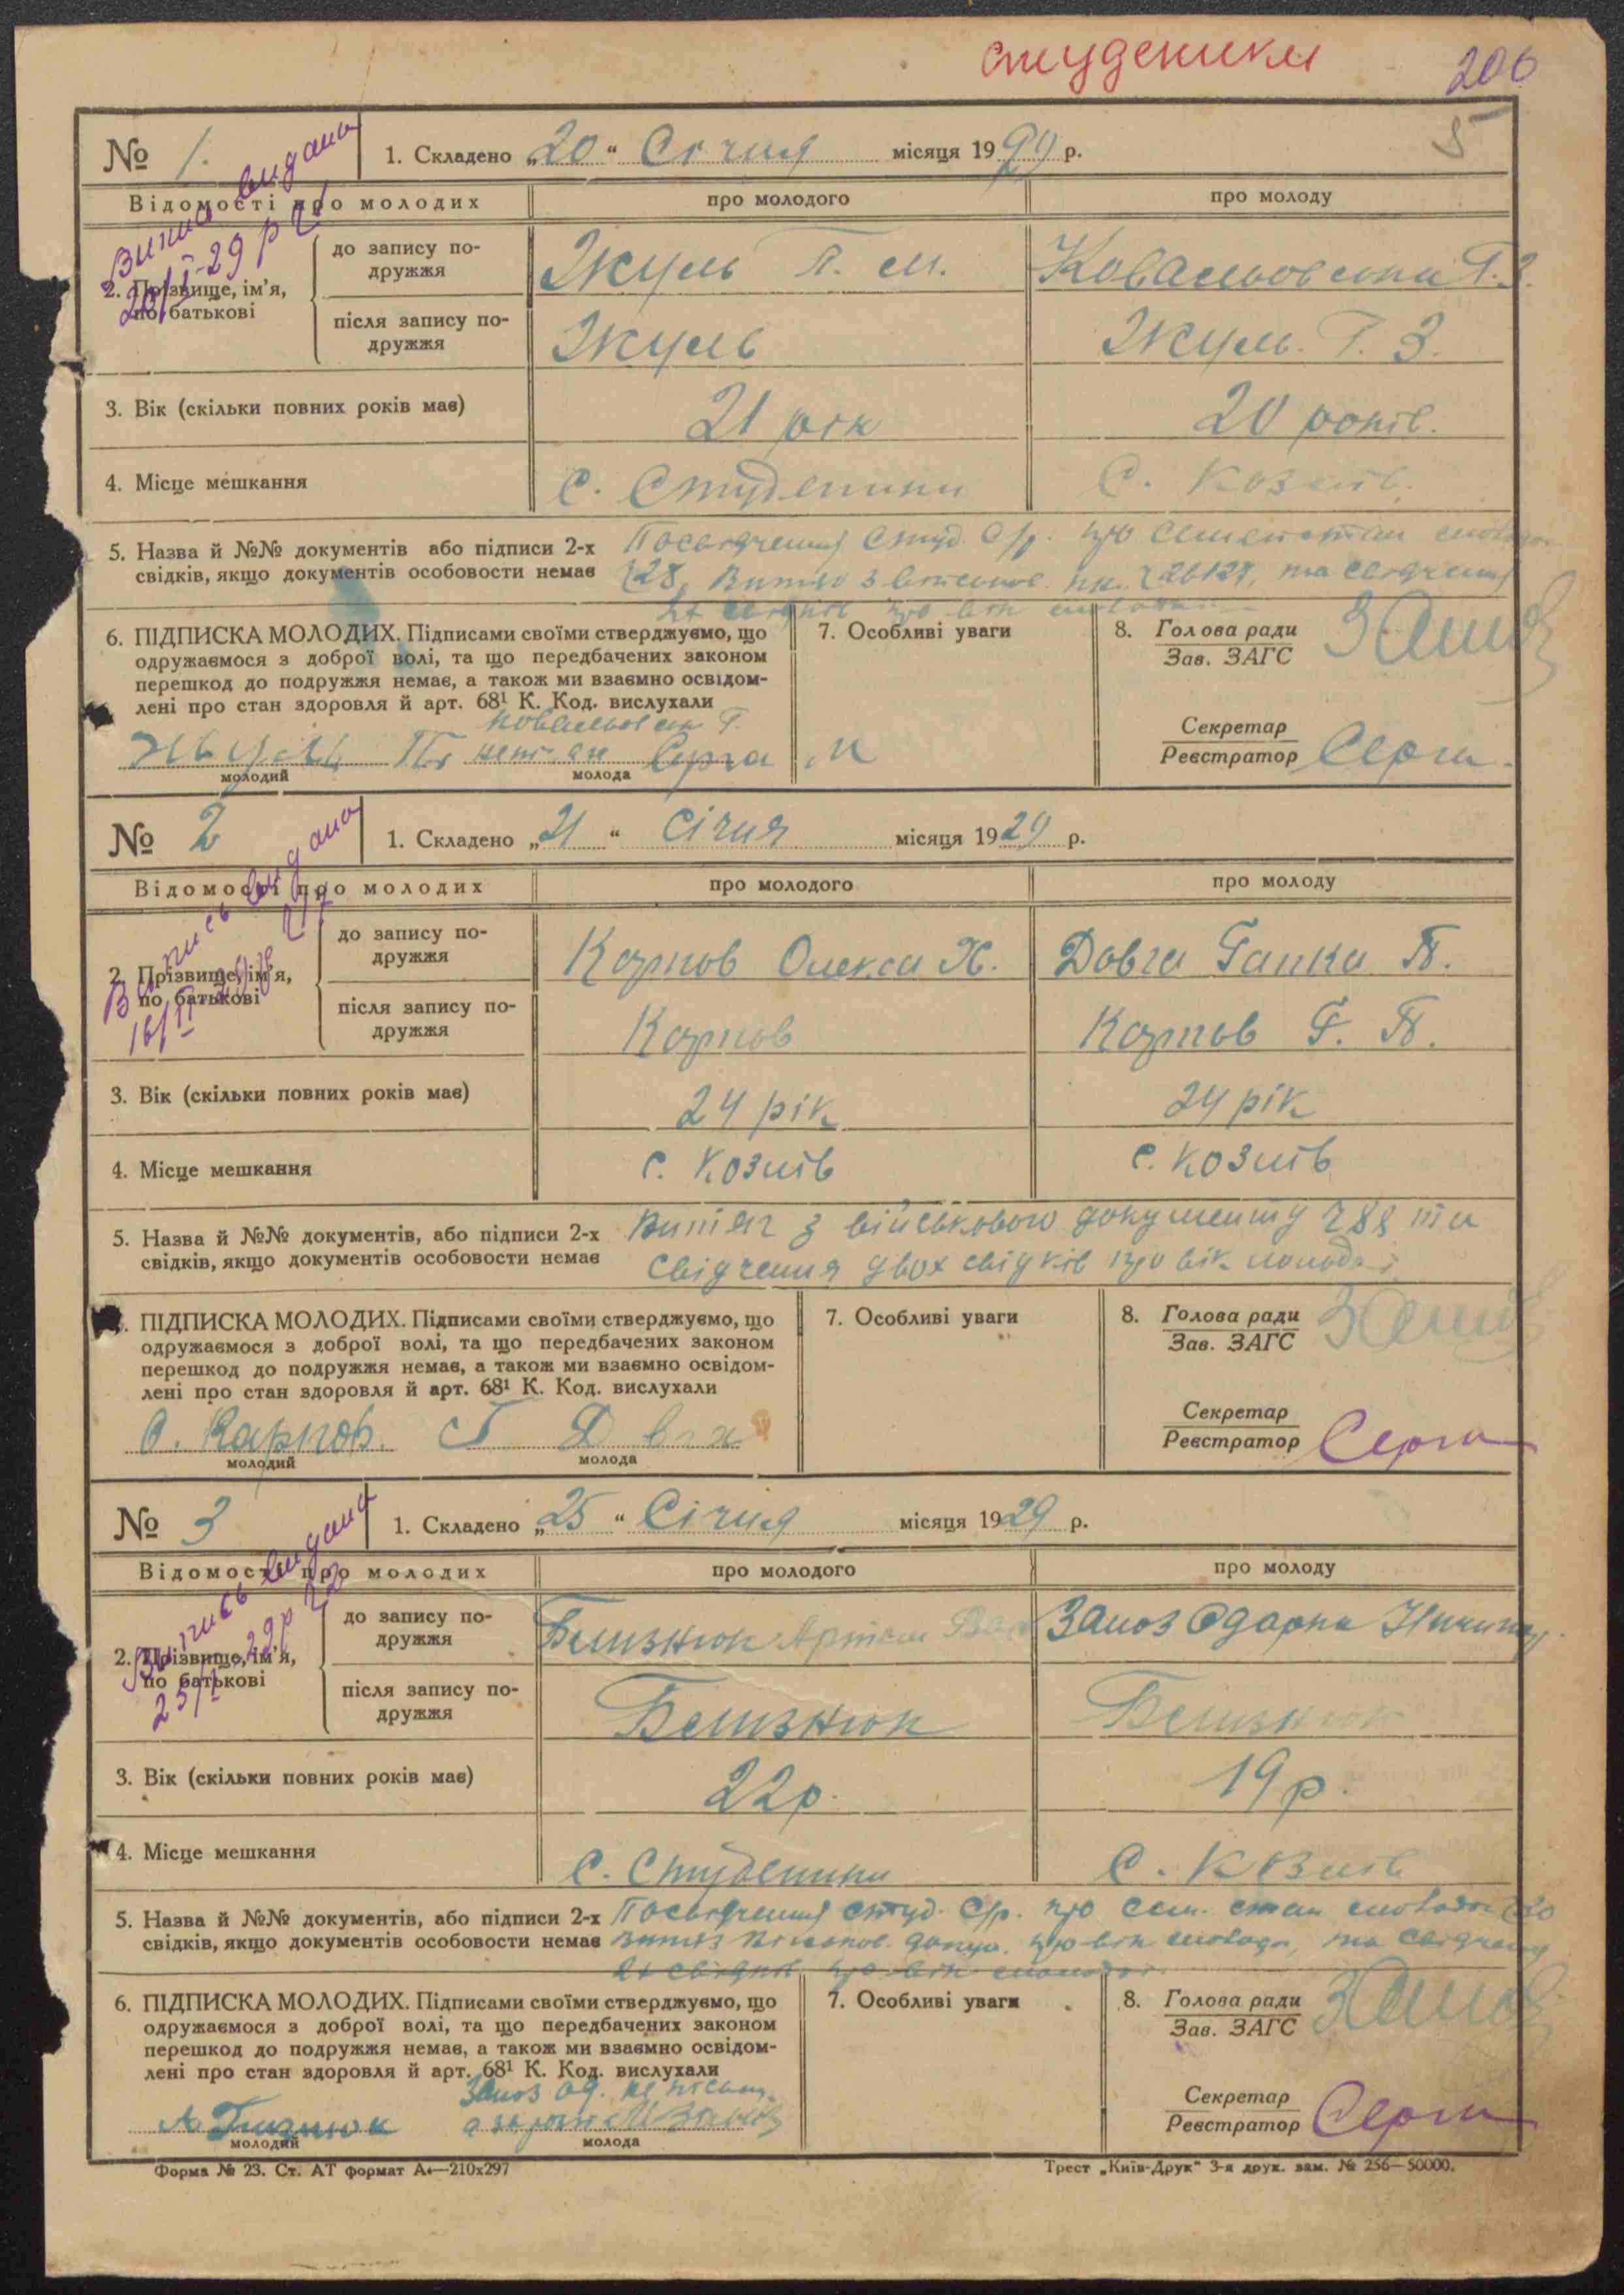 Студеники
206
5
№ 1. 1. Складено „20“ Січня місяця 1929 р.
Випись видана
Відомості про молодих про молодого про молоду
2. Прізвище, ім'я, по батькові
до запису подружжя Жуль П. М. Ковальовська Г. З.
після запису подружжя Жуль Жуль Г. З.
3. Вік (скільки повних років має) 21 рік 20 років.
4. Місце мешкання С. Студеники С. Козлів.
5. Назва й №№ документів або підписи 2-х Посвідчення Студ. С/р. про стан
свідків, якщо документів особовости немає 28, Витяг з та свідчення
6. ПІДПИСКА МОЛОДИХ. Підписами своїми стверджуємо, що 7. Особливі уваги 8. Голова ради
одружаємося з доброї волі, та що передбачених законом Зав. ЗАГС
перешкод до подружжя немає, а також ми взаємно освідом-
лені про стан здоровля й арт. 68¹ К. Код. вислухали
Секретар
Реєстратор
молодий молода
№ 2 1. Складено „21“ Січня місяця 1929 р.
Випись видана
Відомості про молодих про молодого про молоду
2. Прізвище, ім'я, по батькові
до запису подружжя Карпов Олекса Х. Довга Ганка П.
після запису подружжя Карпов Карпов Г. П.
3. Вік (скільки повних років має) 24 рік 24 рік
4. Місце мешкання с. Козлів с. Козлів
5. Назва й №№ документів, або підписи 2-х Витяг з військового документу 288 та
свідків, якщо документів особовости немає свідчення двох свідків про вік молодої
6. ПІДПИСКА МОЛОДИХ. Підписами своїми стверджуємо, що 7. Особливі уваги 8. Голова ради
одружаємося з доброї волі, та що передбачених законом Зав. ЗАГС
перешкод до подружжя немає, а також ми взаємно освідом-
лені про стан здоровля й арт. 68¹ К. Код. вислухали
Секретар
О. Карпов. Г Довга Реєстратор
молодий молода
№ 3 1. Складено „25“ Січня місяця 1929 р.
Випись видана
Відомості про молодих про молодого про молоду
2. Прізвище, ім'я, по батькові
до запису подружжя Близнюк Артем Замоз Одарка
після запису подружжя Близнюк Близнюк
3. Вік (скільки повних років має) 22 р. 19 р.
4. Місце мешкання С. Студеники С. Козлів
5. Назва й №№ документів, або підписи 2-х Посвідчення студ. С/р. про сем. стан
свідків, якщо документів особовости немає витяг про вік та свідчення
2х свідків про вік молодої
6. ПІДПИСКА МОЛОДИХ. Підписами своїми стверджуємо, що 7. Особливі уваги 8. Голова ради
одружаємося з доброї волі, та що передбачених законом Зав. ЗАГС
перешкод до подружжя немає, а також ми взаємно освідом-
лені про стан здоровля й арт. 68¹ К. Код. вислухали
Секретар
А. Близнюк Реєстратор
молодий молода
Форма № 23. Ст. АТ формат А₄—210х297 Трест „Київ-Друк“ 3-я друк. зам. № 256—50000.